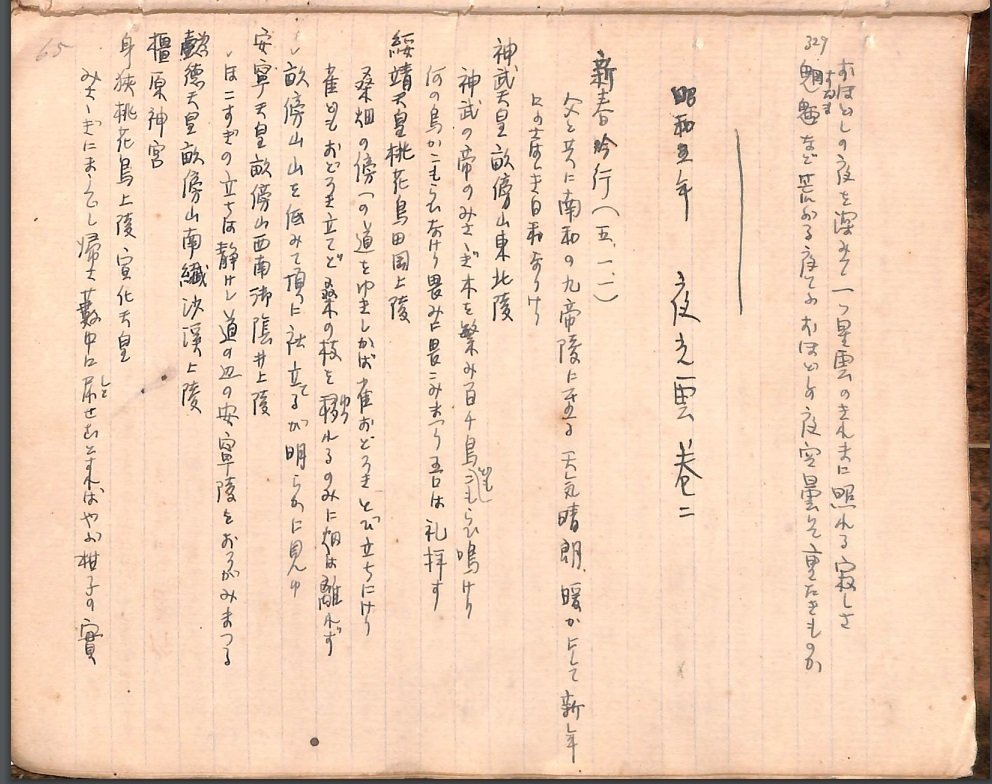 おほとしの夜を深みて一つ星雲のきれまに照れる寂しさ
329
魍魎など荒ぶる夜てふおほとしの夜空曇りて重たきものか
昭和五年 夜之雲 巻二
新春吟行(五、一、一)
父と共に南和の九帝陵に至る 天気晴朗、暖かにして新年
にふさはしき日和なりけり
神武天皇畝傍山東北陵
神武の帝のみさゞぎ木を繁み百千鳥こもらひ鳴けり
何の鳥かこもらひなけり畏みに畏こみまつり吾は礼拝す
綏靖天皇桃花鳥田岡上陵
桑畑の傍への道をゆきしかば雀おどろきとび立ちにけり
雀らもおどろき立てど桑の枝を移れるのみに畑は離れず
畝傍山山を低みて頂に社立てるが明らかに見ゆ
安寧天皇畝傍山西南御陰井上陵
ほこすぎの立ちは静けし道の辺の安寧陵をおろがみまつる
懿徳天皇畝傍山南繊沙渓上陵
橿原神宮
身狭桃花鳥上陵宣化天皇
みさゝぎにまゐりし帰さ藪中に尿せむとすればやぶ柑子の実
65